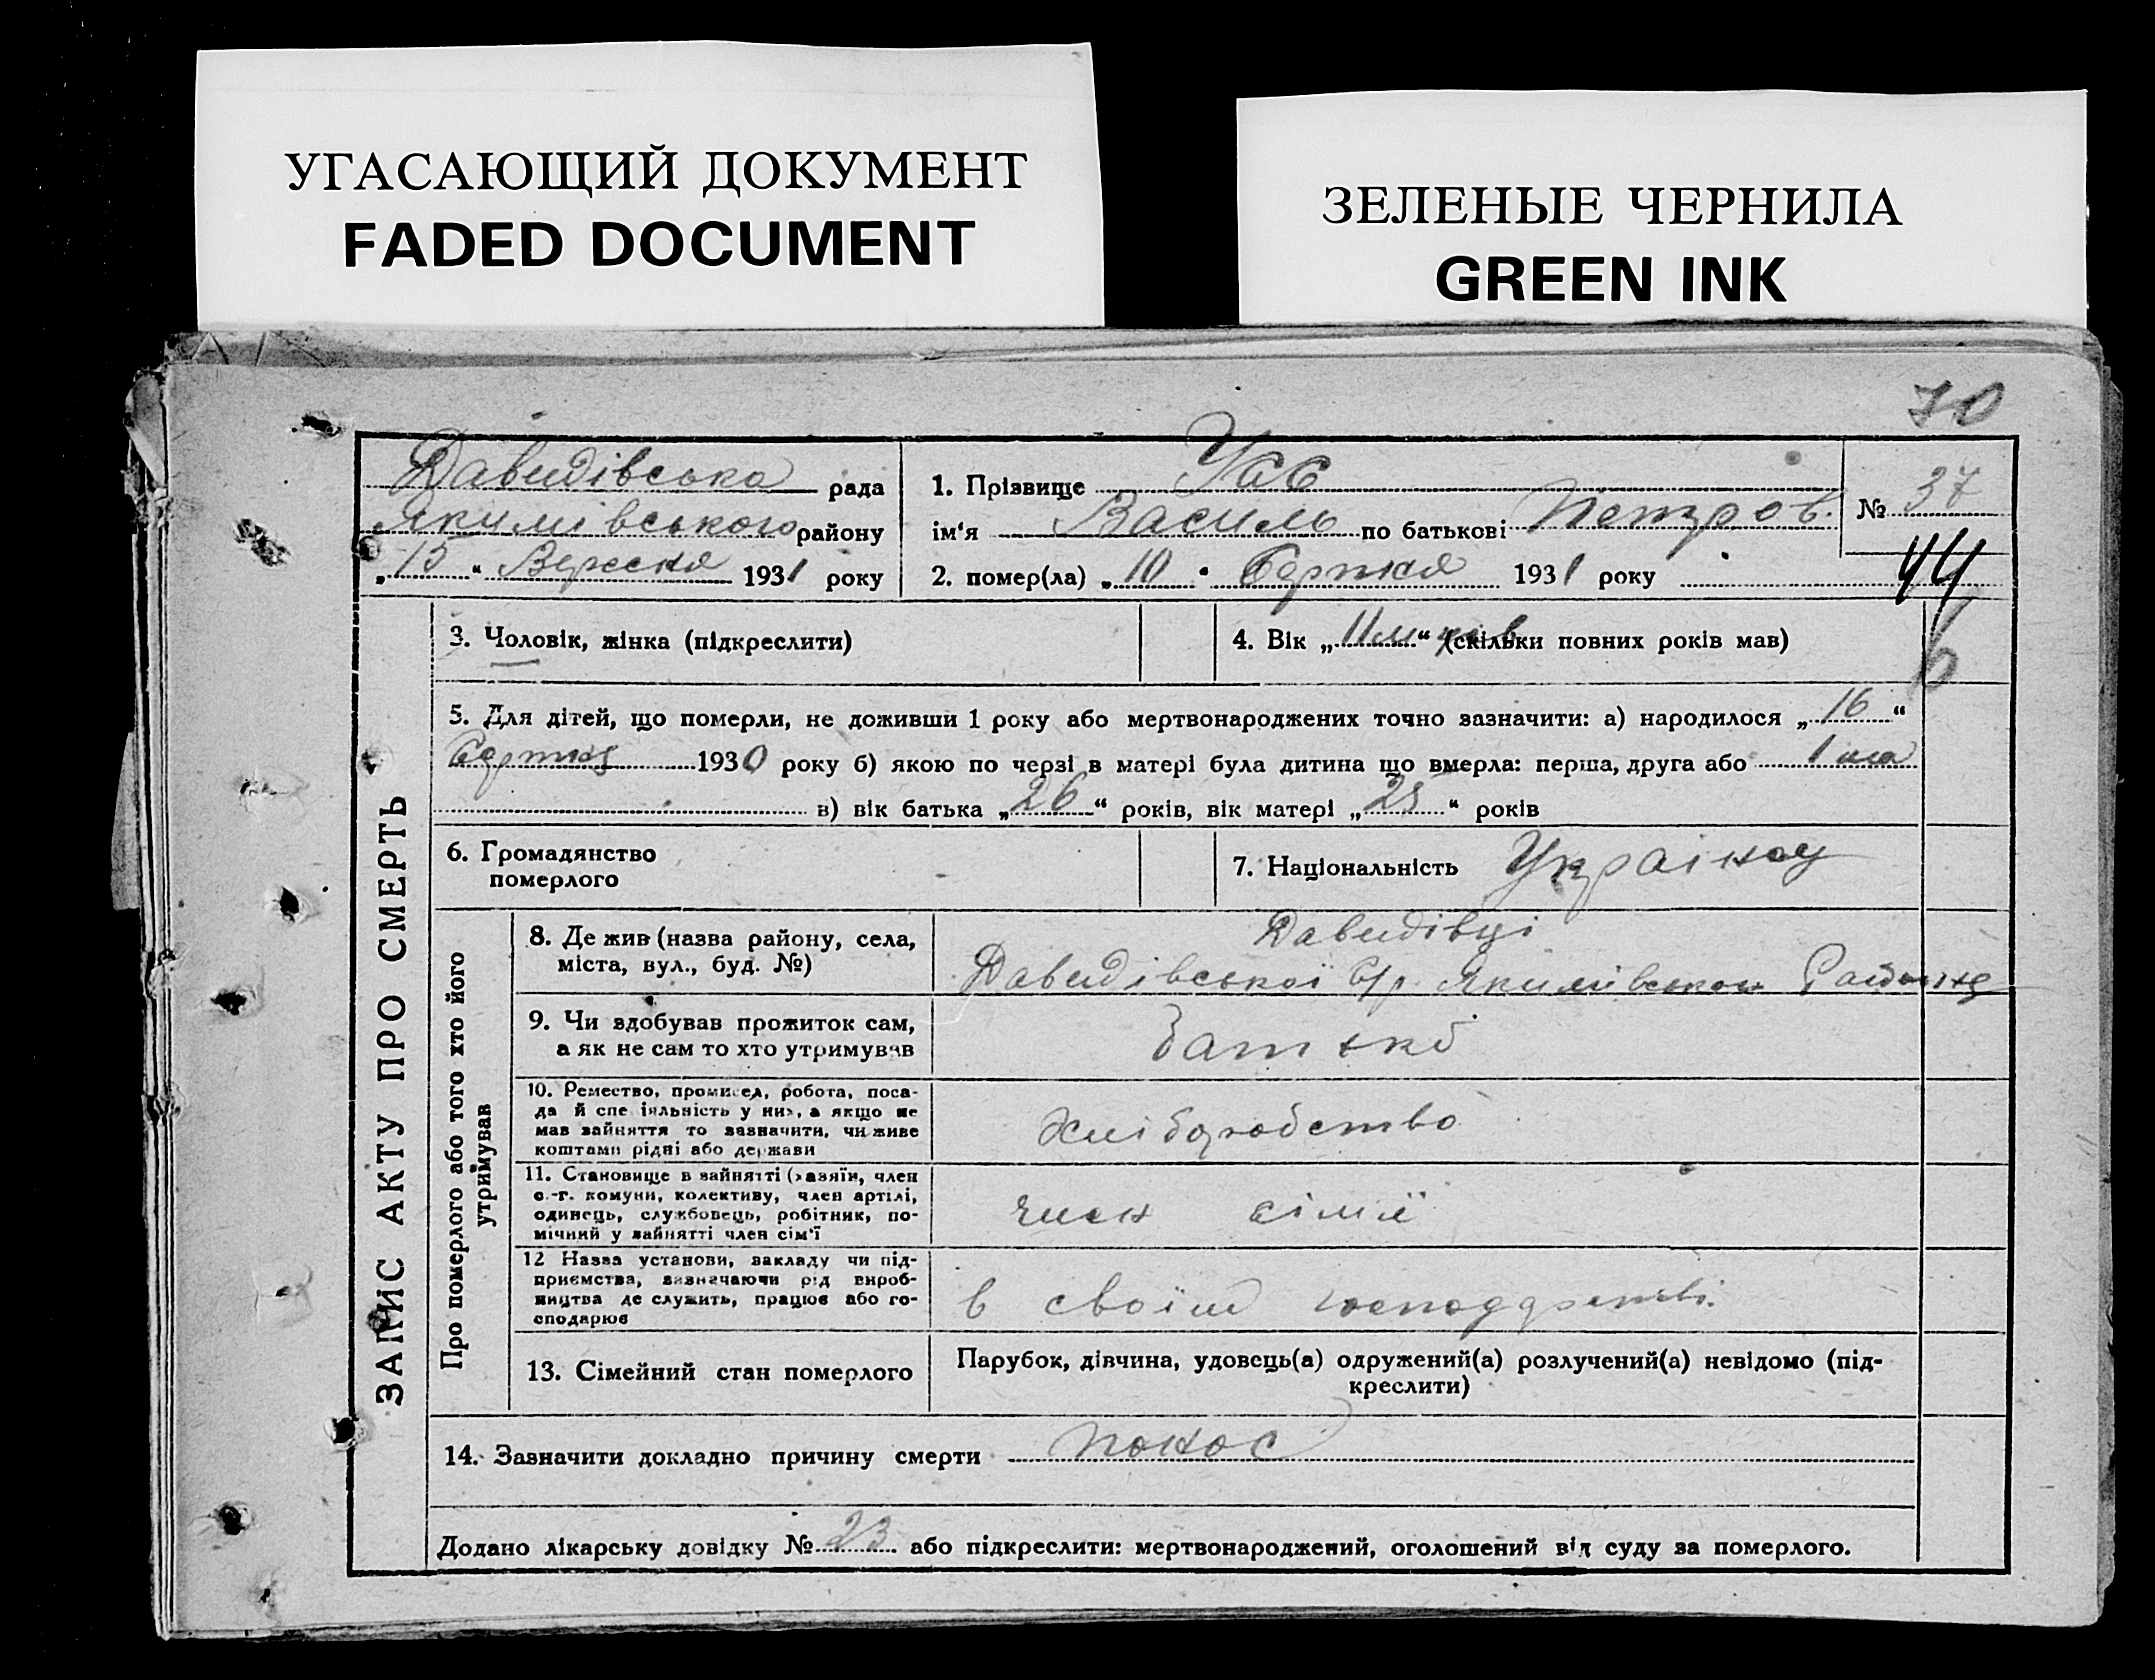 УГАСАЮЩИЙ ДОКУМЕНТ
FADED DOCUMENT
ЗЕЛЕНЫЕ ЧЕРНИЛА
GREEN INK
70
Давидівська рада
Якимівського району
„15“ Вересня 1931 року
1. Прізвище Усс
ім‘я Василь по батькові Петров.
2. помер(ла) „10“ Серпня 1931 року
№ 37
44
3. Чоловік, жінка (підкреслити)
4. Вік „11 м-ців“ (скільки повних років мав)
6
5. Для дітей, що померли, не доживши 1 року або мертвонароджених точно зазначити: а) народилося „16“
Серпня 1930 року б) якою по черзі в матері була дитина що вмерла: перша, друга або 1 ша
в) вік батька „26“ років, вік матері „25“ років
6. Громадянство
померлого
7. Національність Украінец
ЗАПИС АКТУ ПРО СМЕРТЬ
Про померлого або того хто його
утримував
8. Де жив (назва району, села,
міста, вул., буд. №)
Давидівці
Давидівської С/р. Якимівського Району
9. Чи здобував прожиток сам,
а як не сам то хто утримував
Батько
10. Ремество, промисел, робота, поса-
да й спеціяльність у них, а якщо не
мав зайняття то зазначити, чи живе
коштами рідні або держави
Хліборобство
11. Становище в зайнятті (хазяїн, член
с.-г. комуни, колективу, член артілі,
одинець, службовець, робітник, по-
мічний у зайнятті член сім‘ї
член сімії
12 Назва установи, закладу чи під-
приємства, зазначаючи рід вироб-
ництва де служить, працює або го-
сподарює
в своїм господарстві.
13. Сімейний стан померлого
Парубок, дівчина, удовець(а) одружений(а) розлучений(а) невідомо (під-
креслити)
14. Зазначити докладно причину смерти понос
Додано лікарську довідку № 23 або підкреслити: мертвонароджений, оголошений від суду за померлого.